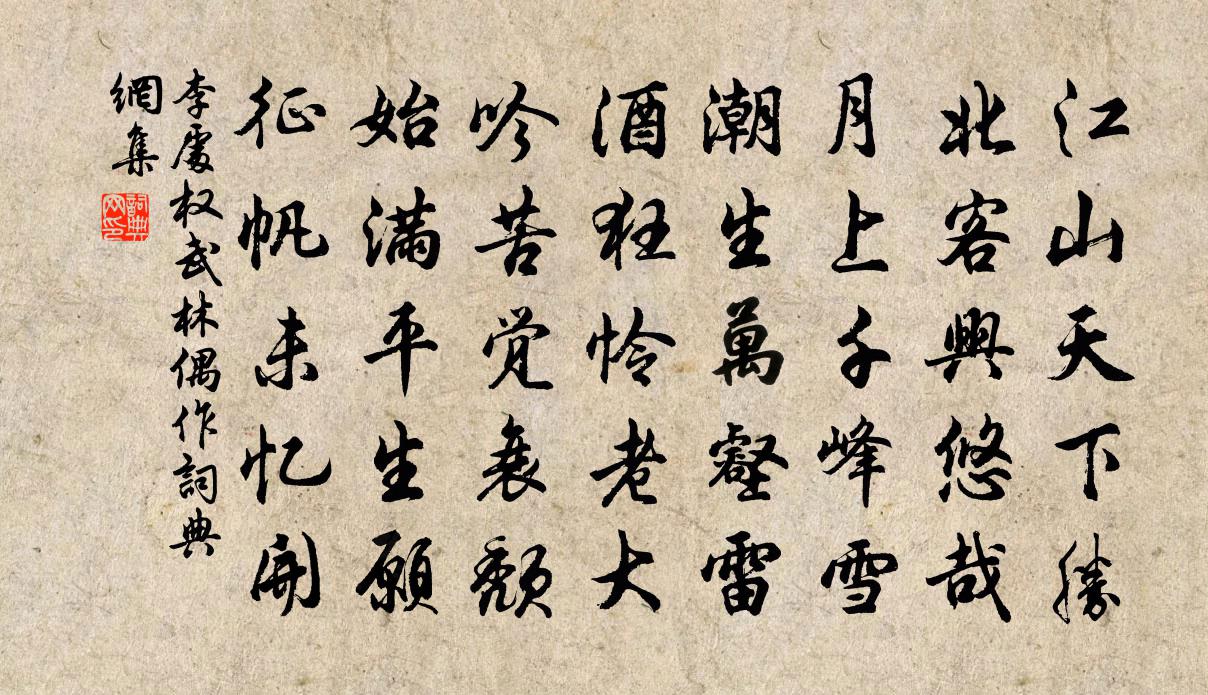 江山天下勝
北客興悠哉
月上千峰雪
潮生萬壑雷
酒狂怜老大
吟苦觉衰颓
始满平生願
征帆未忆開
李處权武林偶作詞典
網集
詞典网印